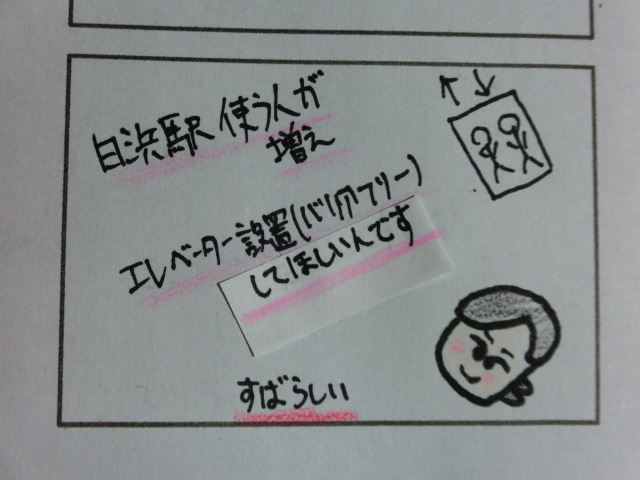 白浜駅 使う人が
増え
エレベーター設置(バリアフリー)
してほしいんです
すばらしい